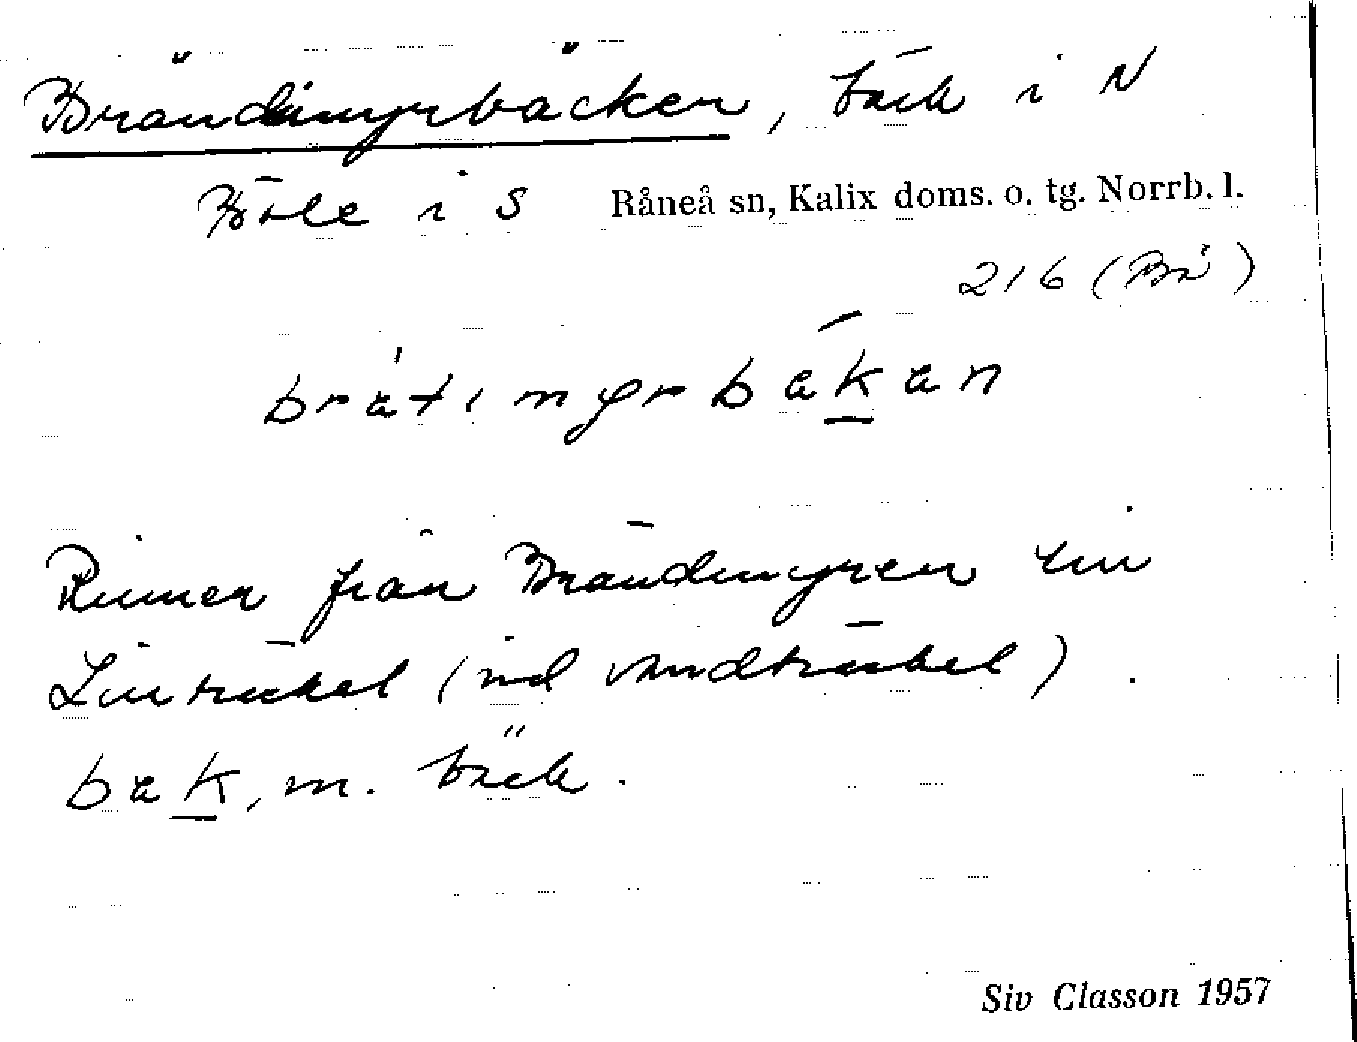 Brändimyrbäcken, bäck i N
Böle i S Råneå sn, Kalix doms. o. tg. Norrb. l.
216 (Bä)
brátimyrbäkan
Rinner från Brändimyren till
Linträsket (vid vandträsket).
bäk, m. bäck.
Siv Classon 1957